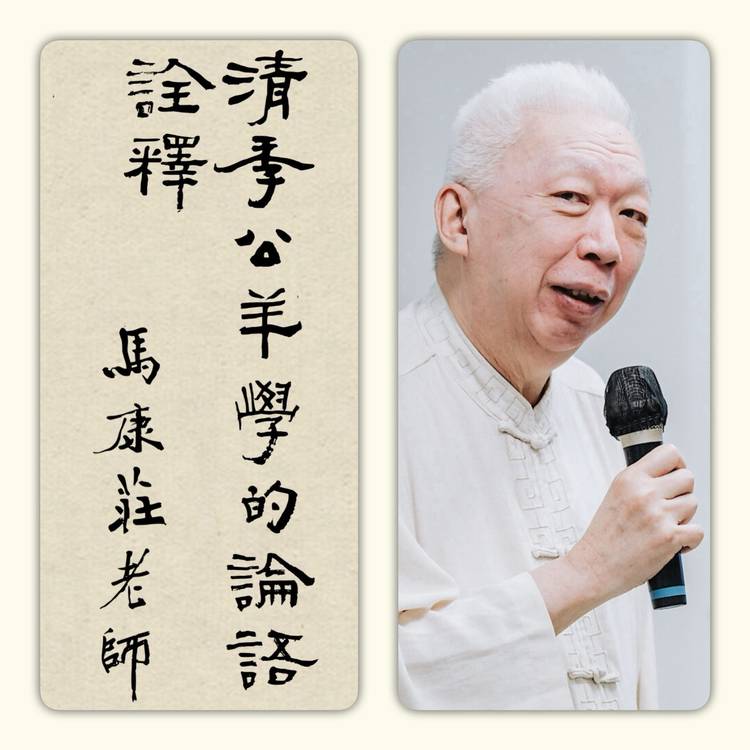 清季公羊學的論語
詮釋
馬康莊老師